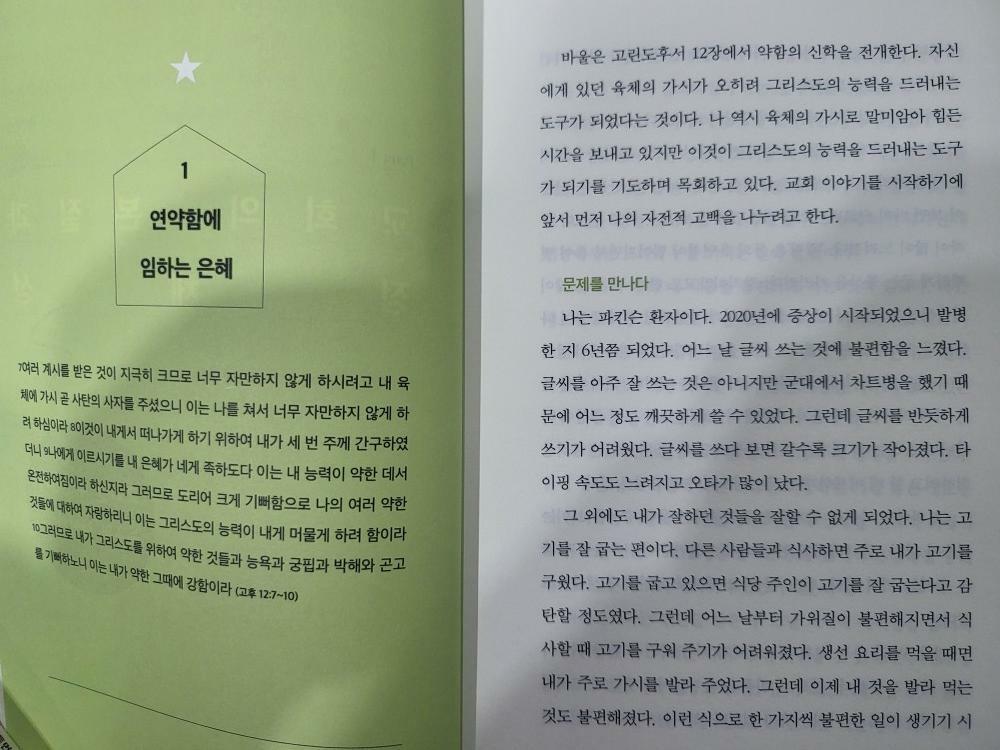 1
연약함에
임하는 은혜
7여러 계시를 받은 것이 지극히 크므로 너무 자만하지 않게 하시려고 내 육
체에 가시 곧 사탄의 사자를 주셨으니 이는 나를 쳐서 너무 자만하지 않게 하
려 하심이라 8이것이 내게서 떠나가게 하기 위하여 내가 세 번 주께 간구하였
더니 9나에게 이르시기를 내 은혜가 네게 족하도다 이는 내 능력이 약한 데서
온전하여짐이라 하신지라 그러므로 도리어 크게 기뻐함으로 나의 여러 약한
것들에 대하여 자랑하리니 이는 그리스도의 능력이 내게 머물게 하려 함이라
10그러므로 내가 그리스도를 위하여 약한 것들과 능욕과 궁핍과 박해와 곤고
를 기뻐하노니 이는 내가 약한 그때에 강함이라 (고후 12:7~10)
바울은 고린도후서 12장에서 약함의 신학을 전개한다. 자신
에게 있던 육체의 가시가 오히려 그리스도의 능력을 드러내는
도구가 되었다는 것이다. 나 역시 육체의 가시로 말미암아 힘든
시간을 보내고 있지만 이것이 그리스도의 능력을 드러내는 도구
가 되기를 기도하며 목회하고 있다. 교회 이야기를 시작하기에
앞서 먼저 나의 자전적 고백을 나누려고 한다.
문제를 만나다
나는 파킨슨 환자이다. 2020년에 증상이 시작되었으니 발병
한 지 6년쯤 되었다. 어느 날 글씨 쓰는 것에 불편함을 느꼈다.
글씨를 아주 잘 쓰는 것은 아니지만 군대에서 차트병을 했기 때
문에 어느 정도 깨끗하게 쓸 수 있었다. 그런데 글씨를 반듯하게
쓰기가 어려웠다. 글씨를 쓰다 보면 갈수록 크기가 작아졌다. 타
이핑 속도도 느려지고 오타가 많이 났다.
그 외에도 내가 잘하던 것들을 잘할 수 없게 되었다. 나는 고
기를 잘 굽는 편이다. 다른 사람들과 식사하면 주로 내가 고기를
구웠다. 고기를 굽고 있으면 식당 주인이 고기를 잘 굽는다고 감
탄할 정도였다. 그런데 어느 날부터 가위질이 불편해지면서 식
사할 때 고기를 구워 주기가 어려워졌다. 생선 요리를 먹을 때면
내가 주로 가시를 발라 주었다. 그런데 이제 내 것을 발라 먹는
것도 불편해졌다. 이런 식으로 한 가지씩 불편한 일이 생기기 시